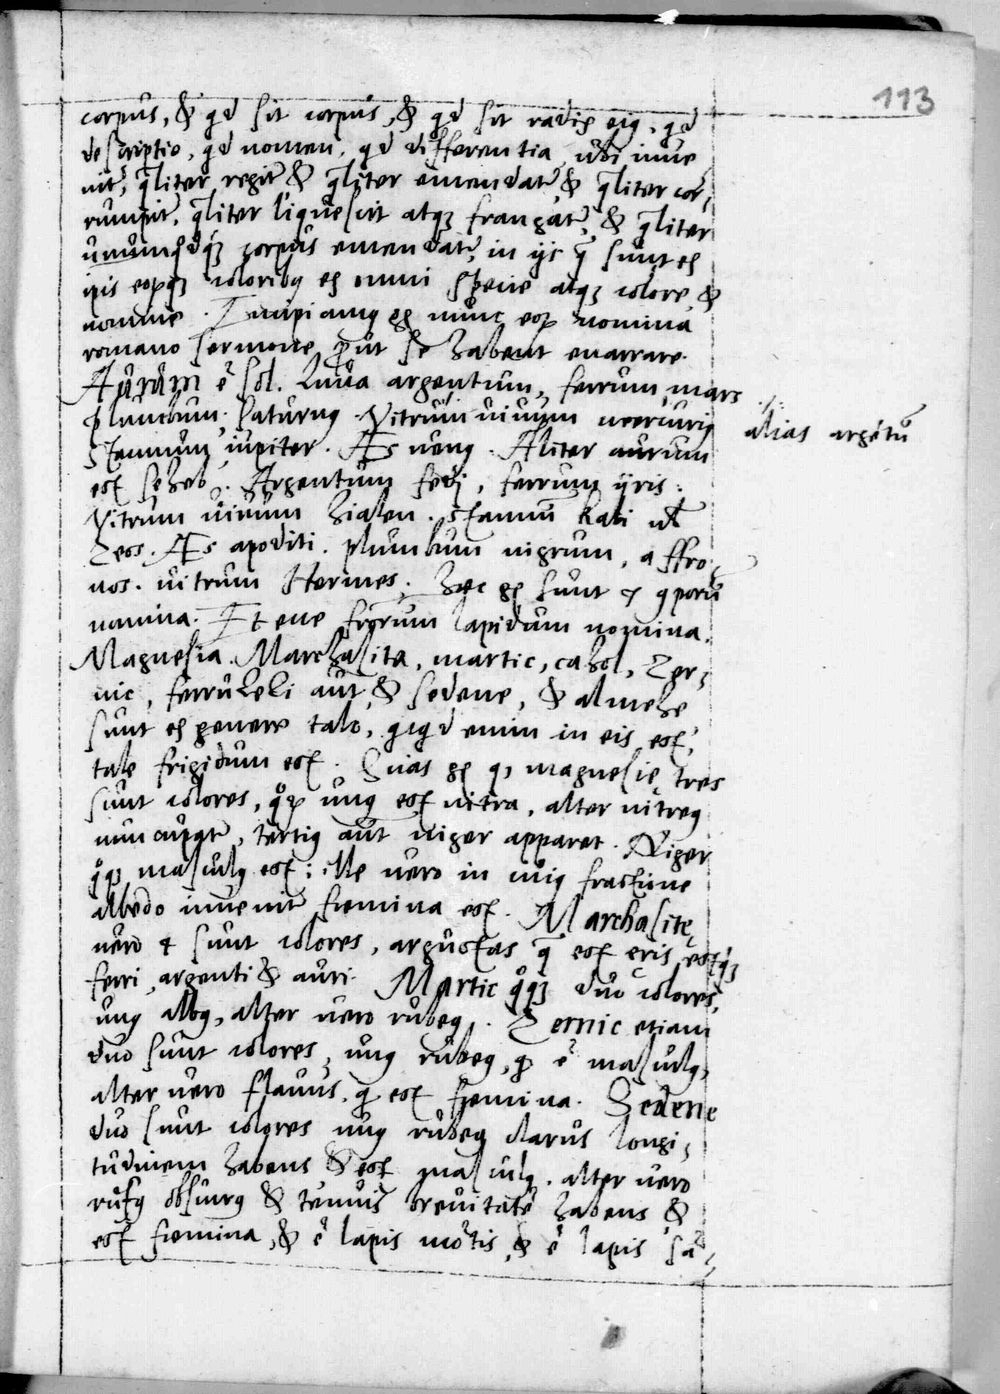 113
corpus, & qd sit corpus, & qd sit radix eiꝰ, qd
descriptio, qd nomen, qd differentia, ubi inue
nit̃, qͣliter regit̃ & qͣliter emendat̃ & qͣliter cor,
rumpit̃, qͣliter liquescit atqꝫ frangat̃, & qͣliter
unumqdqꝫ corpus emendat̃, in ijs q̃ sunt ex
ipis eorꝫqꝫ coloribꝰ ex omni specie atqꝫ colore &
nomine. Incipiamꝰ gͦ nunc eorꝫ nomina
romano sermone put se habent enarrare.
Aurum ẽ sol. Luna argentum, ferrum mars
plumbum Saturnꝰ. Vitrum uiuum mercuriꝰ
alias argẽtũ
Stannum iupiter. Æs uenꝰ. Aliter aurum
est seheb. Argentum fedj, ferrum ijris.
Vitrum uiuum Hialen. Stannũ kabi uł
Zeos. Æs apoditi. plumbum nigrum, affro,
nos. uitrum Hermes. Hæc gͦ sunt 7 corporũ
nomina. Et ene horum lapidum nomina.
Magnesia. Marchasita, martic, cahol, Zer,
nic, ferruleli aut & sedene, & almehe
sunt ex genere talo, qicqd enim in eis est,
tale frigidum est. Suas gͦ qꝫ magnesię tres
sunt colores, qorꝫ unꝰ est nitra, alter uitreꝰ
nuncupat̃, tertiꝰ aut niger apparet. Niger
qͦqꝫ masculꝰ est: ille uero in cuiꝰ fractione
albedo inuenit̃ fœmina est. Marchasitę
uero 4 sunt colores, argustas q̃ est eris, estqꝫ
ferri, argenti & auri. Martic qͦqꝫ duo colores,
unꝰ albꝰ, alter uero rubeꝰ. Zernic etiam
duo sunt colores, unꝰ rubeꝰ, q ẽ masculꝰ,
alter uero flauus, q est fœmina. Sedene
duo sunt colores unꝰ rubeꝰ clarus longi,
tudinem habens & est masculꝰ. alter uero
rufꝰ obscurꝰ & tenuis breuitatẽ habens &
est fœmina, & ẽ lapis mõtis, & ẽ lapis sã,